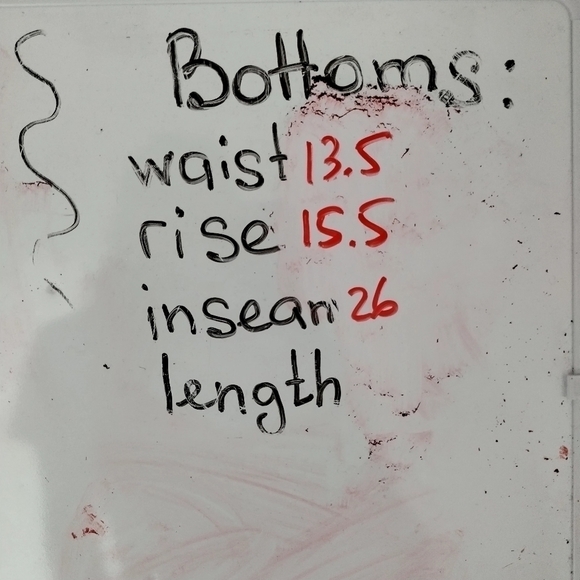 Bottoms:
waist 13.5
rise 15.5
inseam 26
length